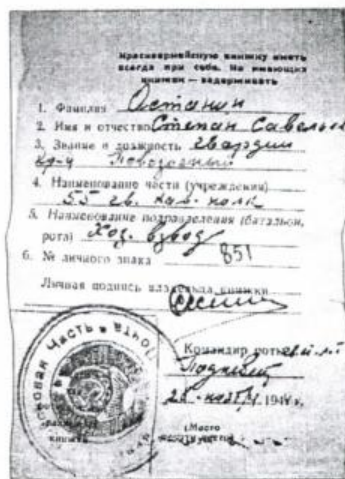 Красноармейскую книжку иметь
всегда при себе. Не имеющих
книжек — задерживать
1. Фамилия Останин
2. Имя и отчество Степан Савельев
3. Звание и должность гвардии
кр-ц Повозочный
4. Наименование части (учреждения)
55 гв. кав. полк
5. Наименование подразделения (батальон,
рота) Хоз. взвод
6. № личного знака 851
Личная подпись владельца книжки
Командир роты
194 г.
Место